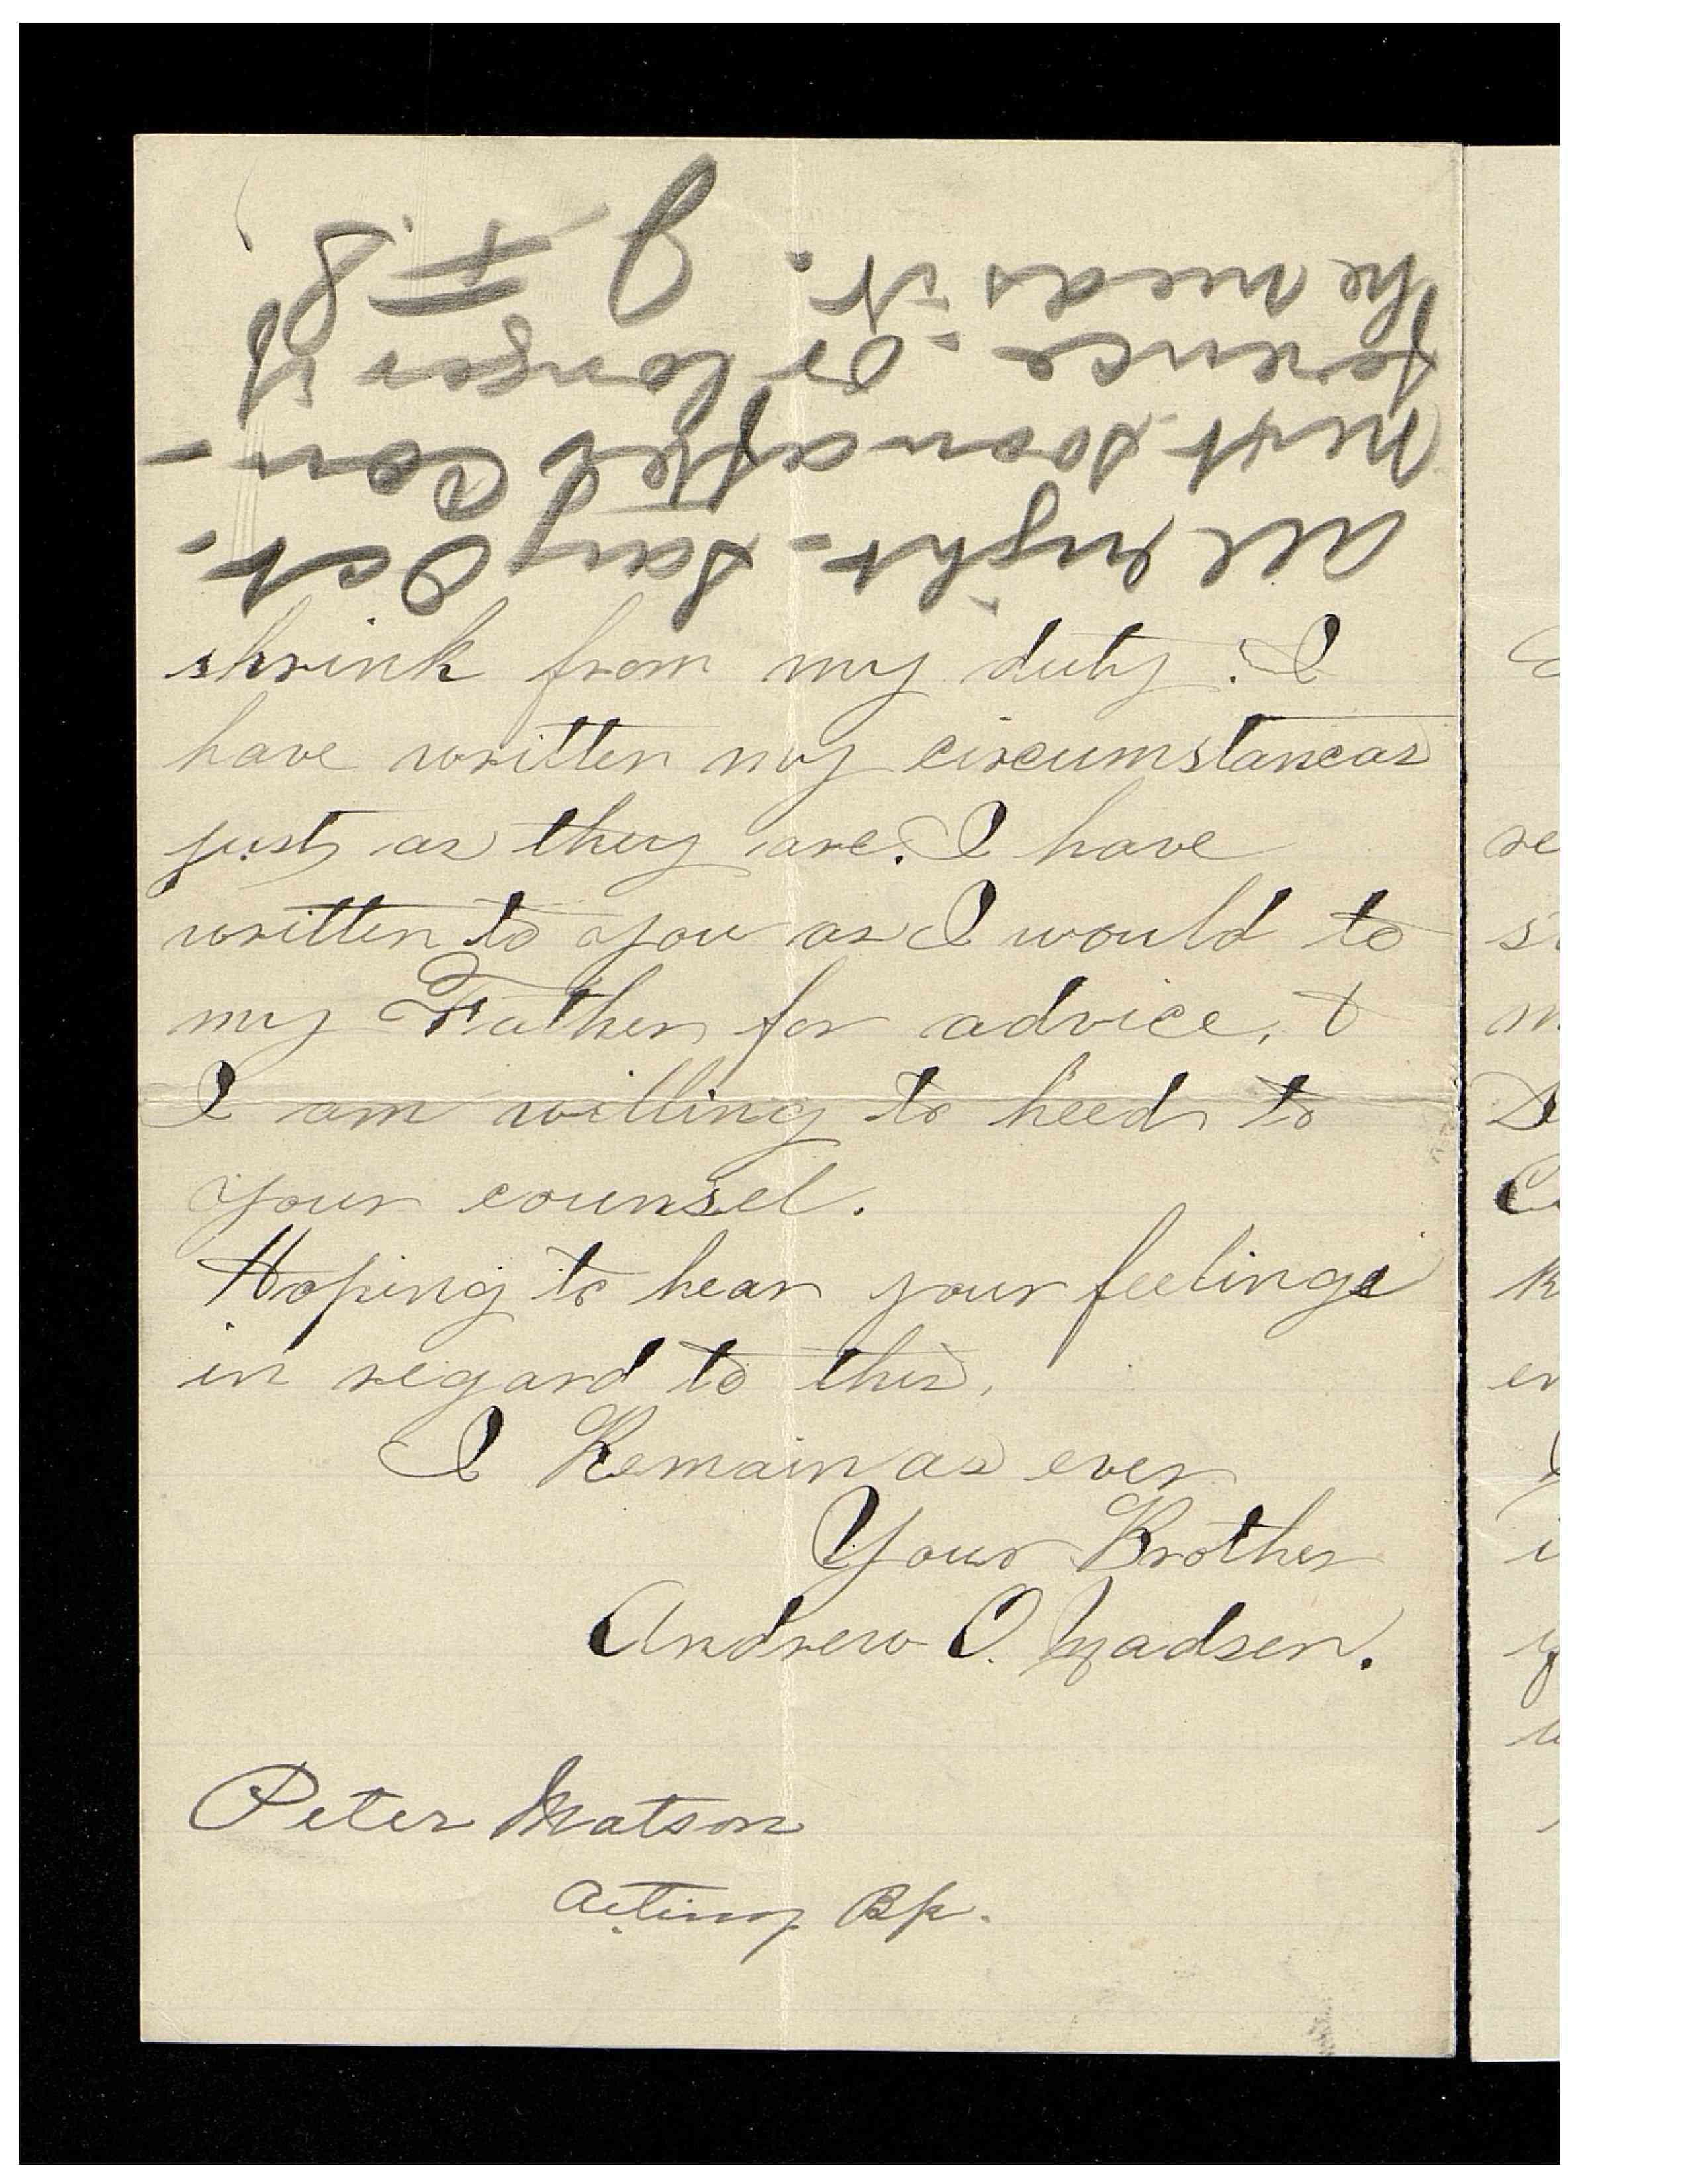 All right - Say Oct.
next soon after Con-
ference - or longer if
he needs it.
J. F. S.
shrink from my duty. I
have written my circumstances
just as they are. I have
written to you as I would to
my Father for advice, &
I am willing to heed to
your counsel.
Hoping to hear your feelings
in regard to this.
I Remain as ever
Your Brother
Andrew O. Madsen.
Peter Matson
Acting Bp.